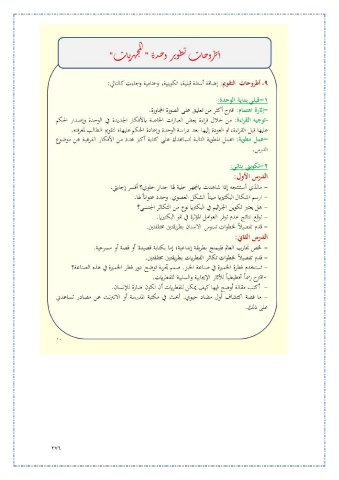 اطروحات تطوير وحدة "المجهريات"
٩- أطروحات التقويم: إضافة أسئلة قبلية، تكوينية، وختامية وجاءت كالتالي:
١-قبلي بداية الوحدة:
-إثارة اهتمام: اقترح أكثر من تعليق على الصورة المجاورة.
-توجيه القراءة: من خلال قراءة بعض العبارات الخاصة بالأفكار الجديدة في الوحدة وإصدار الحكم
عليها قبل القراءة، ثم العودة إليها بعد دراسة الوحدة وإعادة الحكم عليها؛ لتقويم الطالب لمعرفته.
-عمل مطوية: اعمل المطوية التالية لتساعدك على كتابة أكبر عدد من الأفكار الفرعية عن موضوع
الدرس.
٢-تكويني بنائي:
الدرس الأول:
- مالذي أستنتجه إذا شاهدت بالمجهر خلية لها جدار خلوي؟ أفسر إجابتي.
- ارسم أشكال البكتيريا مبيناً الشكل العضوي. وحدد عنواناً لها.
- هل يعتبر تكوين الجراثيم في البكتيريا نوع من التكاثر الجنسي؟
- توقع نتائج عدم توفر العوامل المؤثرة في نمو البكتيريا.
- قدم تفصيلاً لخطوات تسوس الأسنان بطريقتين مختلفتين.
الدرس الثاني:
- لخص تجارب العالم فليمنج بطريقة إبداعية؛ إما بكتابة قصيدة أو قصة أو مسرحية.
- قدم تفصيلاً لخطوات تكاثر الفطريات بطريقتين مختلفتين.
- تستخدم فطرة الخميرة في صناعة الخبز. صمم تجربة توضح دور فطر الخميرة في هذه الصناعة؟
-اقترح رسماً تخطيطياً للآثار الإيجابية والسلبية للفطريات.
- أكتب مقالة أوضح فيها كيف يمكن للفطريات أن تكون ضارة للإنسان.
- ما قصة اكتشاف أول مضاد حيوي. أبحث في مكتبة المدرسة أو الانترنت عن مصادر تساعدني
على ذلك.
٢٧٦